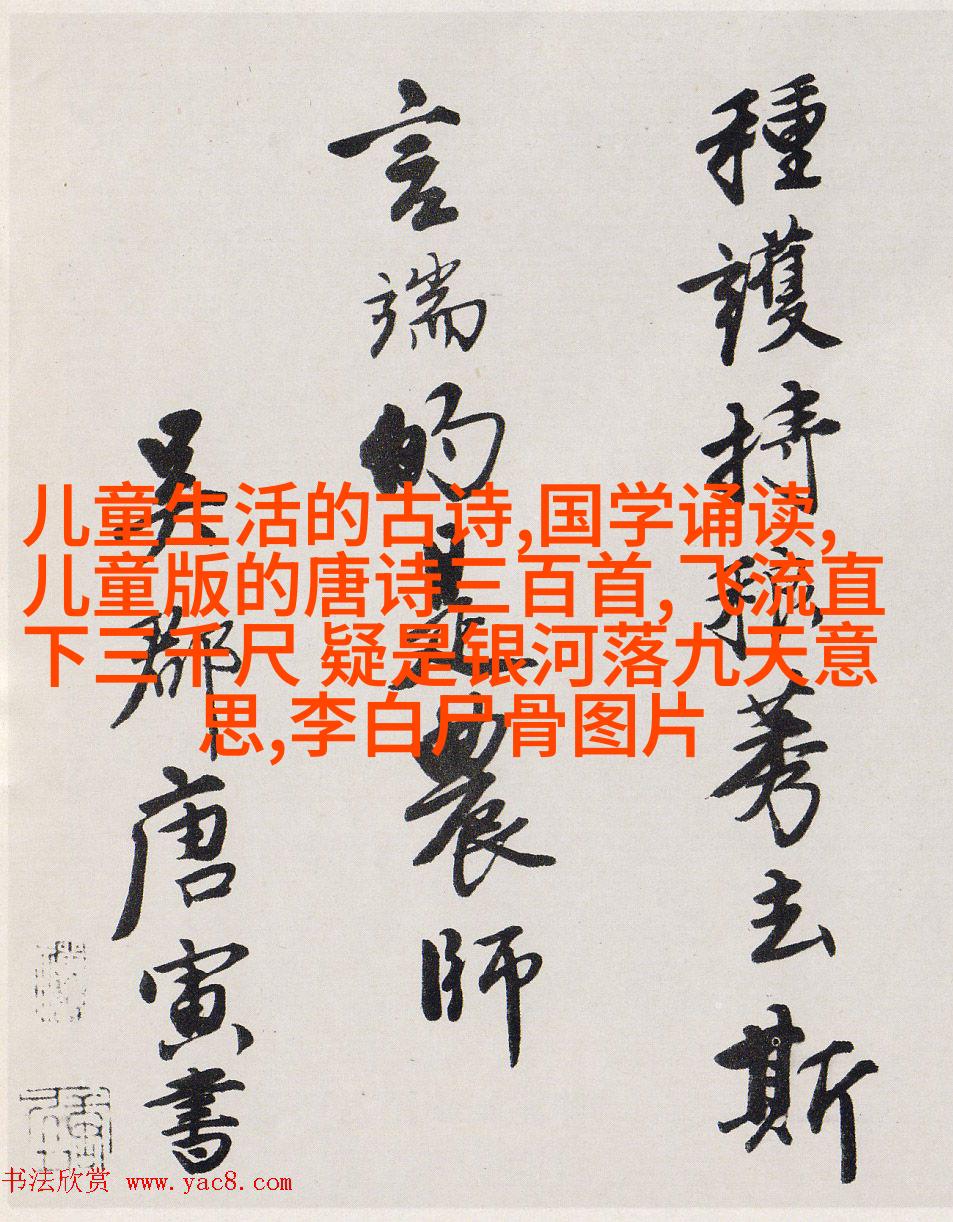 種護持莠去斯
言端的是農師
吳郡唐寅書
儿童生活的古诗,国学诵读,
儿童版的唐诗三百首,飞流直
下三千尺 疑是银河落九天意
思,李白尸骨图片
书法欣赏 www.yac8.com